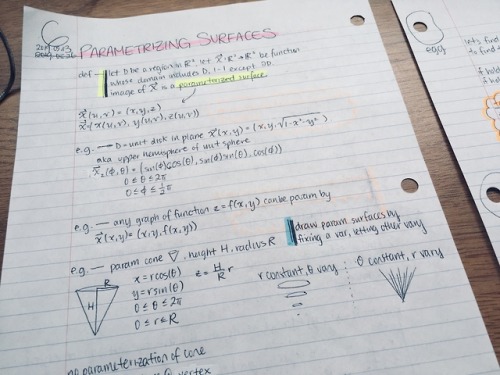 6
PARAMETRIZING SURFACES
def — let D be a region in ℝ², let X⃗: ℝ² → ℝ³ be function
whose domain includes D, 1-1 except ∂D.
image of X⃗ is a parametrized surface
X⃗(u,v) = (x,y,z)
X⃗ = (x(u,v), y(u,v), z(u,v))
e.g. — D = unit disk in plane X⃗(x,y) = (x, y, √1-x²-y²)
aka upper hemisphere of unit sphere
X⃗₂(ϕ,θ) = (sin(ϕ)cos(θ), sin(ϕ)sin(θ), cos(ϕ))
0 ≤ θ ≤ 2π
0 ≤ ϕ ≤ ½π
e.g. — any graph of function z = f(x,y) can be param by
X⃗(x,y) = (x, y, f(x,y))
draw param surfaces by
fixing a var, letting other vary
e.g. — param cone ▽, height H, radius R
R
H
x = r cos(θ) z = H/R r
y = r sin(θ)
0 ≤ θ ≤ 2π
0 ≤ r ≤ R
r constant, θ vary
θ constant, r vary
no parameterization of cone
@ vertex
egg